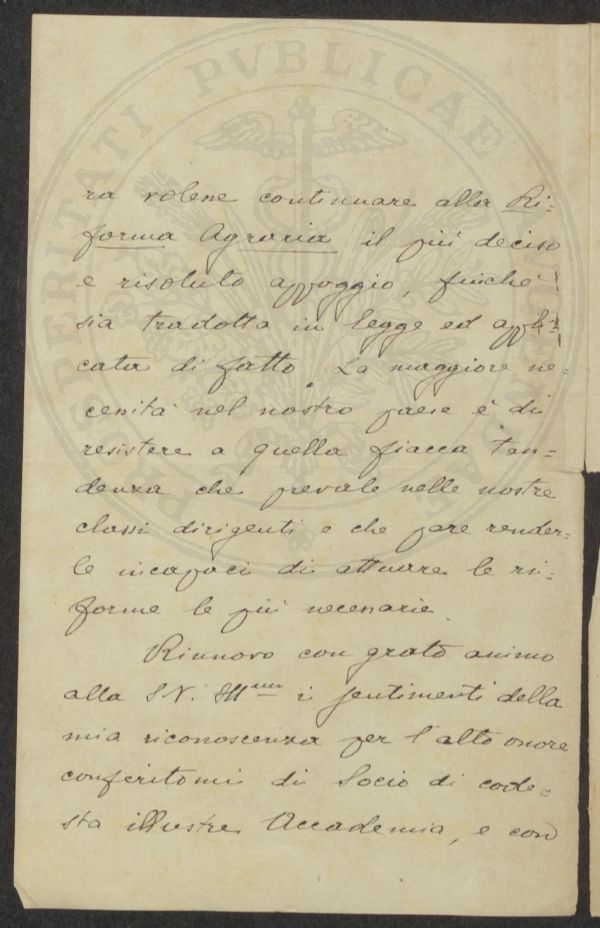 PROSPERITATI PVBLICAE
ra volene continuare alla Ri=
forma Agraria il più deciso
e risoluto appoggio, finchè
sia tradotta in legge ed appli=
cata di fatto. La maggiore ne=
cessità nel nostro paese è di
resistere a quella fiacca ten=
denza che prevale nelle nostre
classi dirigenti e che pare render=
le incapaci di attuare le ri=
forme le più necessarie.
Rinnovo con grato animo
alla S.V. Illma i sentimenti della
mia riconoscenza per l'alto onore
conferitomi di Socio di code=
sta illustre Accademia, e con